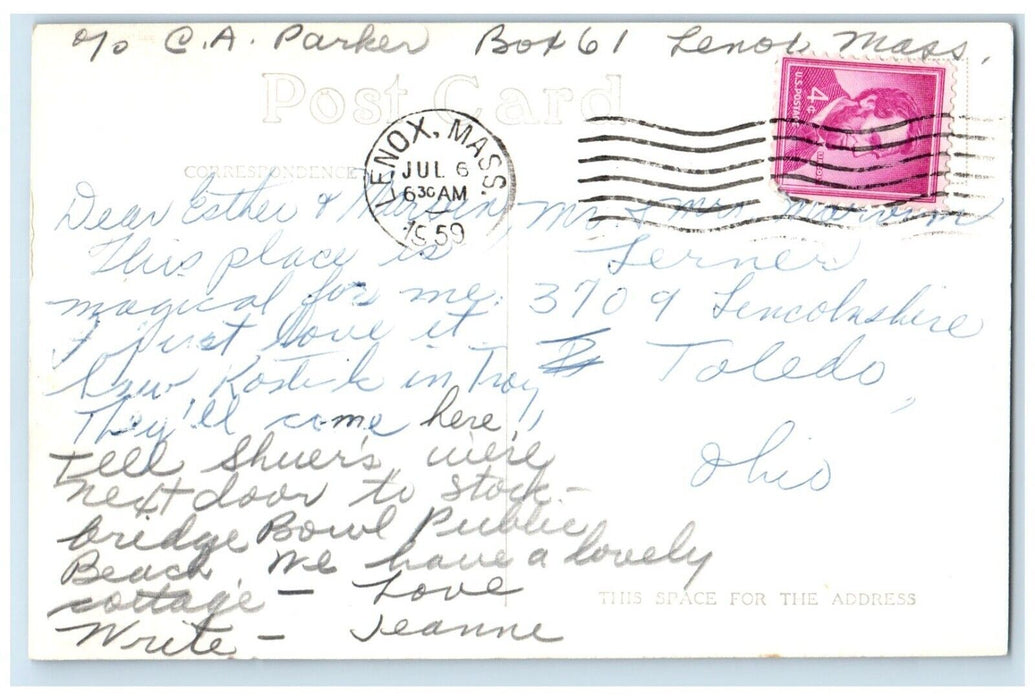 c/o C.A. Parker Box 61 Lenox Mass.
Post Card
U.S. POSTAGE
4¢
LENOX, MASS.
JUL 6
6 30 AM
1959
CORRESPONDENCE
Dear Esther & Marvin,
This place is
magical for me.
I just love it.
Saw Kostick in Troy,
They'll come here,
Tell Shuer's we're
next door to Stock-
bridge Bowl Public
Beach. We have a lovely
cottage - Love
Write - Jeanne
Mr. & Mrs. Marvin
Lerner
3709 Lincolnshire
Toledo,
Ohio
THIS SPACE FOR THE ADDRESS